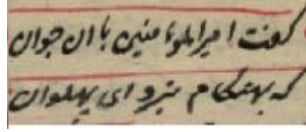 گفت امیرالمؤمنین با ان جوان
که بهنکام نبرد ای پهلوان